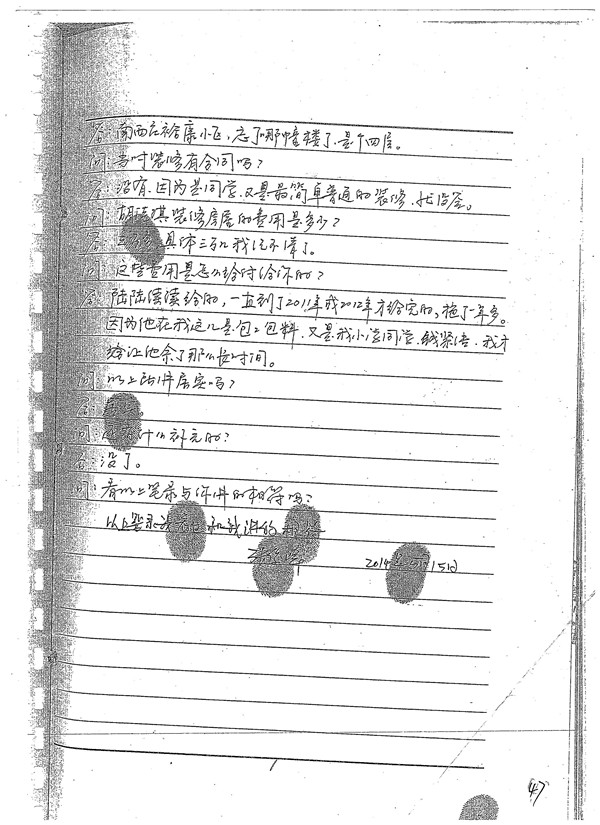 答：南西庄裕康小区，忘了哪幢楼了，是个四层。
问：当时装修有合同吗？
答：没有，因为是同学，又是最简单普通的装修，
问：胡 琪装修房屋的费用是多少？
答： 具体三万几我记不清了。
问：这些费用是怎么给付给你的？
答：陆陆续续给的，一直到了2011年或2012年才给完的，拖了一年多。
因为他在我这儿是包工包料，又是我小学同学，钱紧活，我才
给让他余了那么长时间。
问：以上所讲属实吗？
答：
问： 有什么补充的？
答：没了。
问：看以上笔录与你讲的相符吗？
以上笔录我看过和我讲的相符
2014年 月15日
47